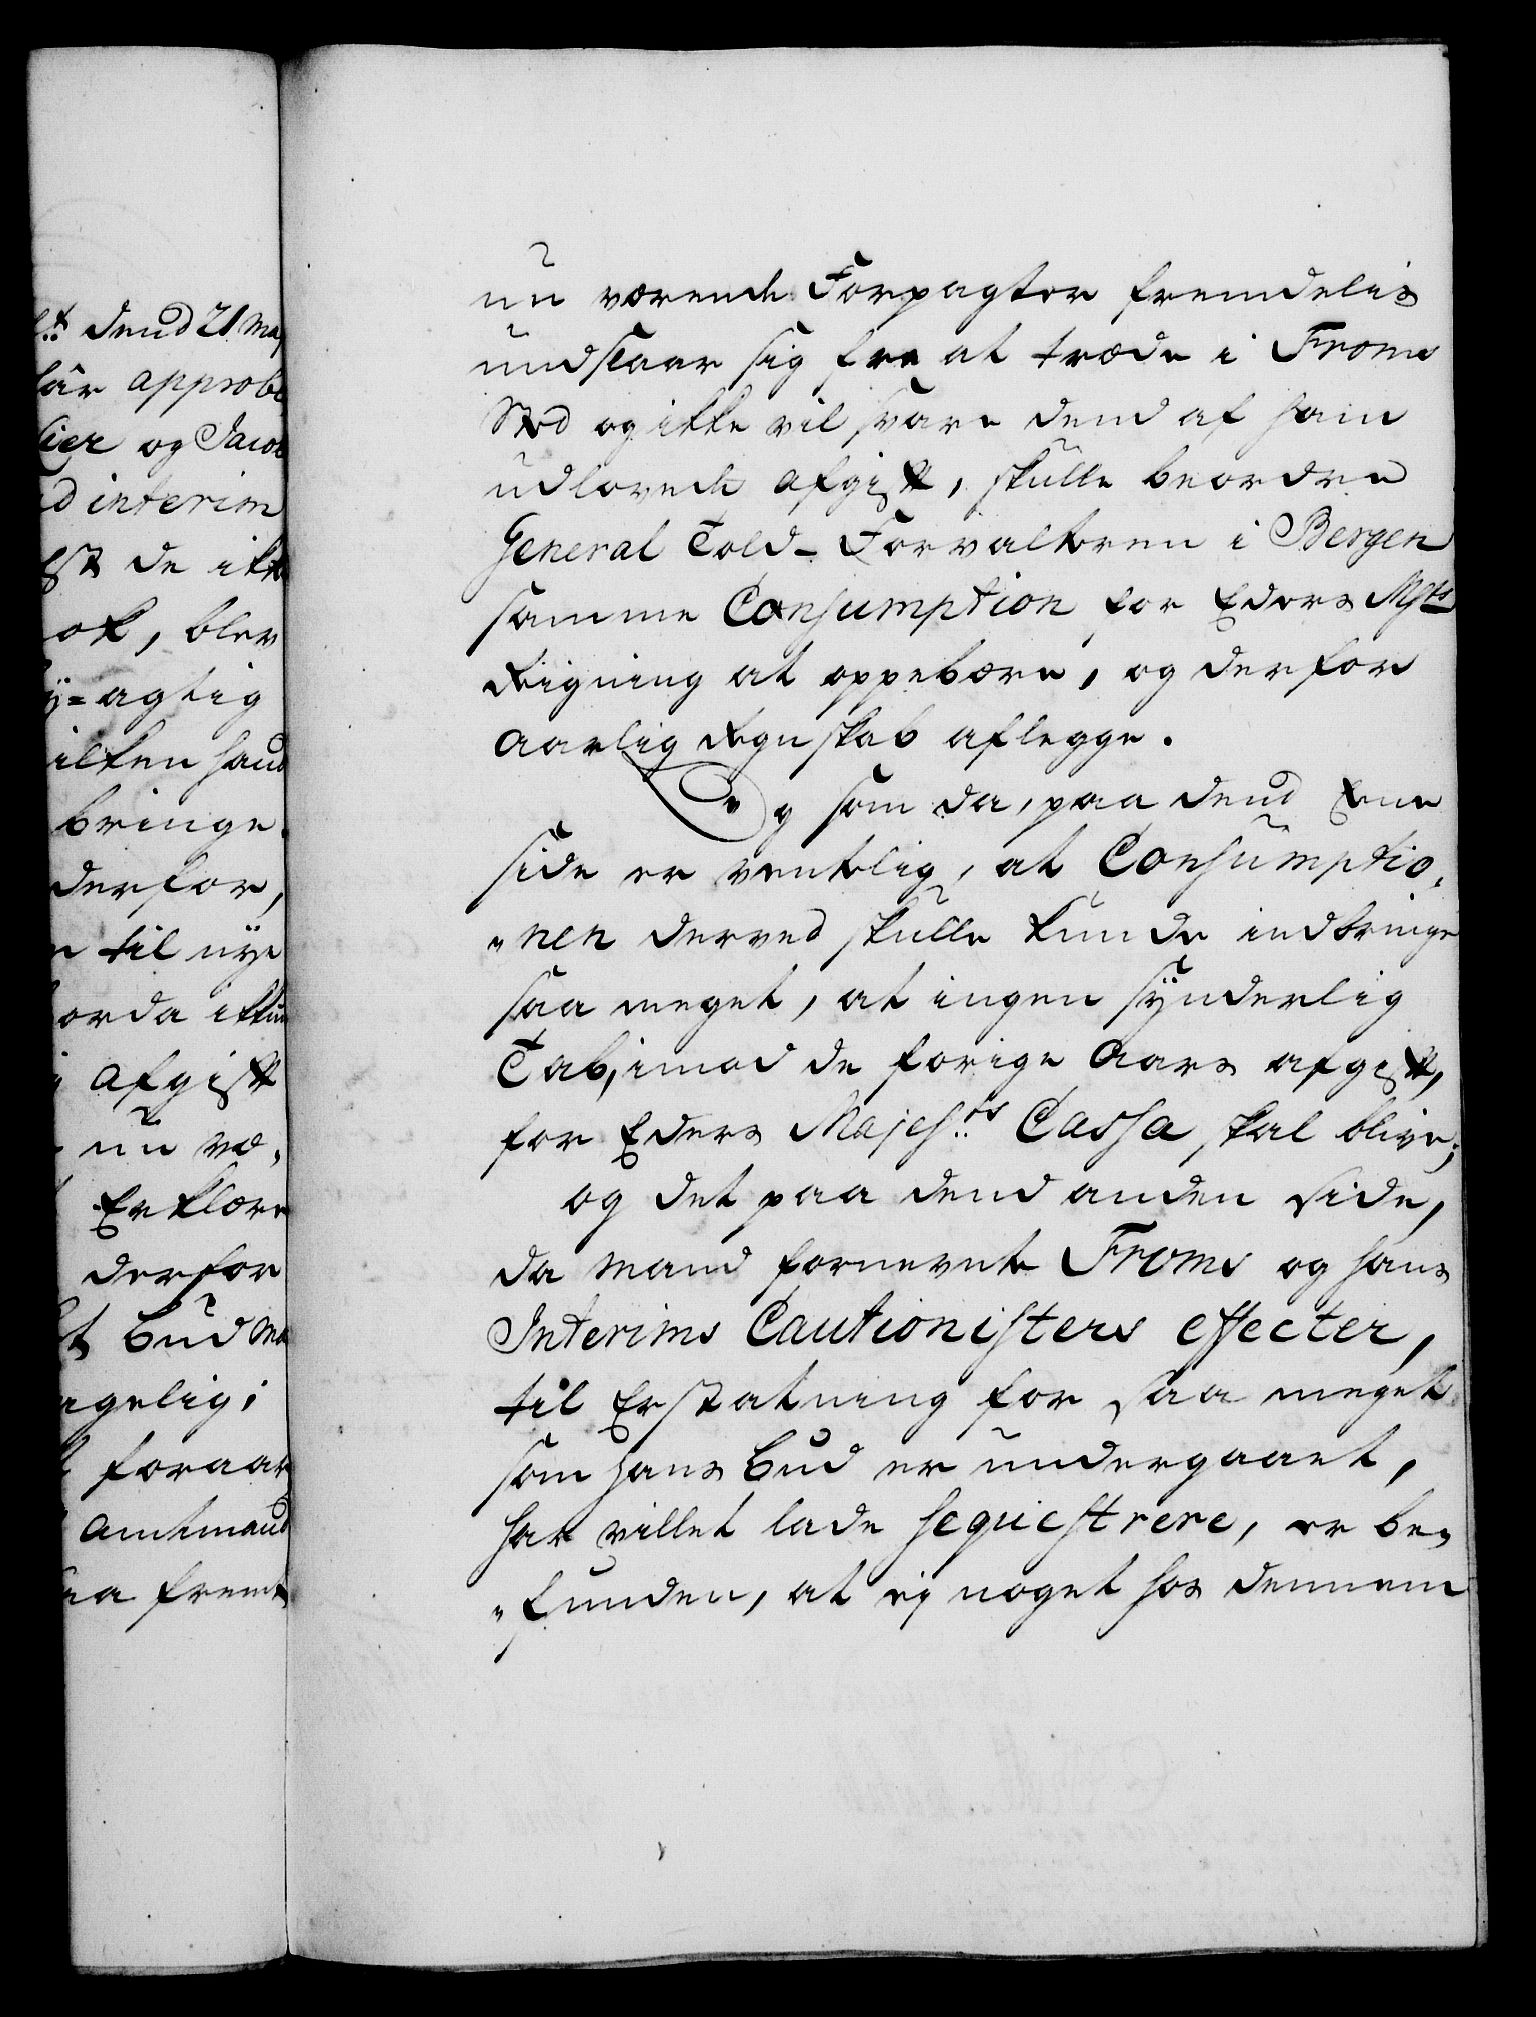 nu værende Forpagter fremdelis
undslaar sig fra at træde i Froms
Sted og ikke vil svare dend af ham
udlovede afgift, skulle beordre
General Told-Forvalteren i Bergen
samme Consumption for Eders Mjts
Reigning at oppebære, og derfor
aarlig Regnskab aflegge.
Og som da, paa dend Eene
side er ventelig, at Consumptio,
"nen derved skulle kunde indbringe
saa meget, at ingen synderlig
Tab, imod de forige Aars afgift,
for Eders Majestts Cassa skal blive;
og det paa dend anden side,
da mand fornevnte Froms og hans
Interims Cautionisters effecter,
til Erstatning for saa meget
som hans bud er undergaaet,
har villet lade sequestrere, er be,
"funden, at ej noget hos dennem
dend 21 Maj
approbe
og Jacob
interim
de ikke
blev
agtig
haud
bringe
derfor,
til nye
afgift
nu væ,
Erklære
derfor
bud
foraar
Amtmand
fremt